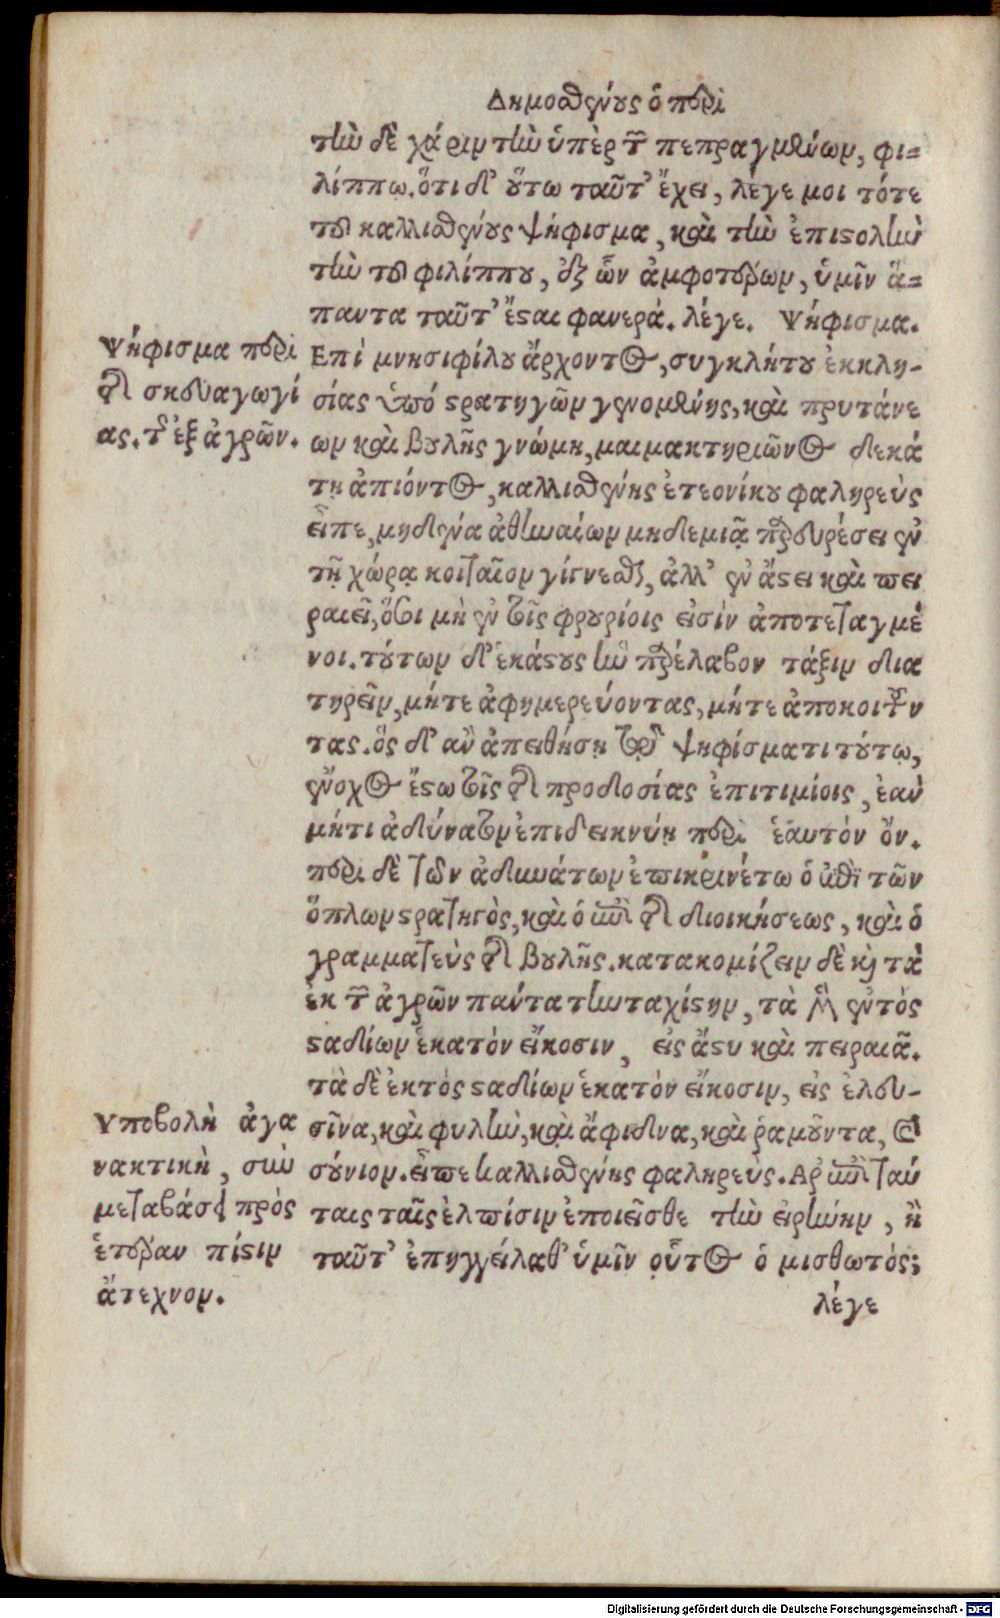 Δημοσθένους ὁ περὶ
τὴν δὲ χάριν τὴν ὑπὲρ τῶν πεπραγμένων, φι-
λίππῳ. ὅτι δ' οὕτω ταῦτ' ἔχει, λέγε μοι τότε
τοῦ καλλισθένους ψήφισμα, καὶ τὴν ἐπιστολὴν
τὴν τοῦ φιλίππου, ἐξ ὧν ἀμφοτέρων, ὑμῖν ἅ-
παντα ταῦτ' ἔσται φανερά. λέγε. Ψήφισμα.
Ψήφισμα περὶ
τῆς σκευαγωγί
ας. τῆς ἐξ ἀγρῶν.
Επὶ μνησιφίλου ἄρχοντος, συγκλήτου ἐκκλη-
σίας ὑπό στρατηγῶν γενομένης, καὶ πρυτάνε
ων καὶ βουλῆς γνώμῃ, μαιμακτηριῶνος δεκά
τῃ ἀπιόντος, καλλισθένης ἐτεονίκου φαληρεὺς
εἶπε, μηδένα ἀθηναίων μηδεμιᾷ παρευρέσει ἐν
τῇ χώρᾳ κοιταῖον γίγνεσθαι, ἀλλ' ἐν ἄστει καὶ πει
ραιεῖ, ὅσοι μὴ ἐν τοῖς φρουρίοις εἰσὶν ἀποτεταγμέ
νοι. τούτων δ' ἑκάστους ἣν παρέλαβον τάξιν δια
τηρεῖν, μήτε ἀφημερεύοντας, μήτε ἀποκοιτοῦν
τας. ὃς δ' ἂν ἀπειθήσῃ τῷ ψηφίσματι τούτῳ,
ἔνοχος ἔστω τοῖς τῆς προδοσίας ἐπιτιμίοις, ἐὰν
μήτι ἀδύνατον ἐπιδεικνύῃ περὶ ἑαυτὸν ὄν.
περὶ δὲ τοῦ ἀδυνάτων ἐπικρινέτω ὁ ἐπὶ τῶν
ὅπλων στρατηγὸς, καὶ ὁ ἐπὶ τῆς διοικήσεως, καὶ ὁ
γραμματεὺς τῆς βουλῆς. κατακομίζειν δὲ καὶ τὰ
ἐκ τῶν ἀγρῶν πάντα τὴν ταχίστην, τὰ μὲν ἐντὸς
σταδίων ἑκατὸν εἴκοσιν, εἰς ἄστυ καὶ πειραιᾶ.
τὰ δὲ ἐκτὸς σταδίων ἑκατὸν εἴκοσιν, εἰς ἐλευ-
Υποβολὴ ἀγα
νακτικὴ, σὺν
μεταβάσει πρὸς
ἑτέραν πίστιν
ἄτεχνον.
σῖνα, καὶ φυλὴν, καὶ ἄφιδνα, καὶ ῥαμοῦντα, καὶ
σούνιον. εἶπε καλλισθένης φαληρεὺς. Αρ' ἐπὶ ταύ
ταις ταῖς ἐλπίσιν ἐποιεῖσθε τὴν εἰρήνην, ἢ
ταῦτ' ἐπηγγείλαθ' ὑμῖν οὗτος ὁ μισθωτός;
λέγε
Digitalisierung gefördert durch die Deutsche Forschungsgemeinschaft - DFG